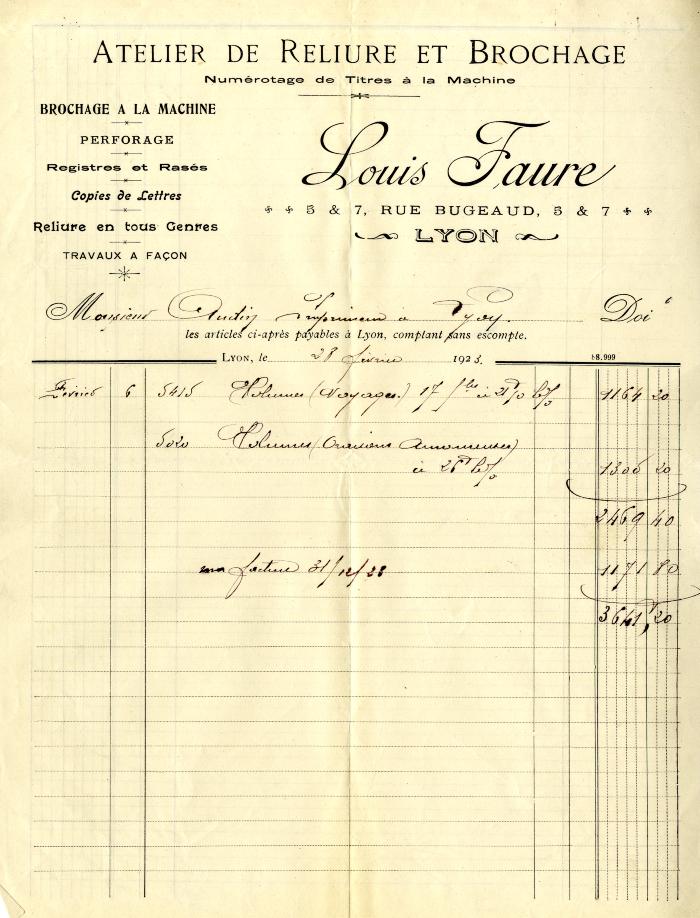 ATELIER DE RELIURE ET BROCHAGE
Numérotage de Titres à la Machine
BROCHAGE A LA MACHINE
PERFORAGE
Registres et Rasés
Copies de Lettres
Reliure en tous Genres
TRAVAUX A FAÇON
Louis Faure
5 & 7, RUE BUGEAUD, 5 & 7
LYON
Monsieur Audin Imprimeur à Lyon. Doit
les articles ci-après payables à Lyon, comptant sans escompte.
LYON, le 28 février 1923.
Février 6 5415 Volumes (Voyages) 17 à 1164 20
5020 Volumes (Oraisons Amoureuses)
à 26 1305 20
2469 40
facture 31/12/22 1171 80
3641,20